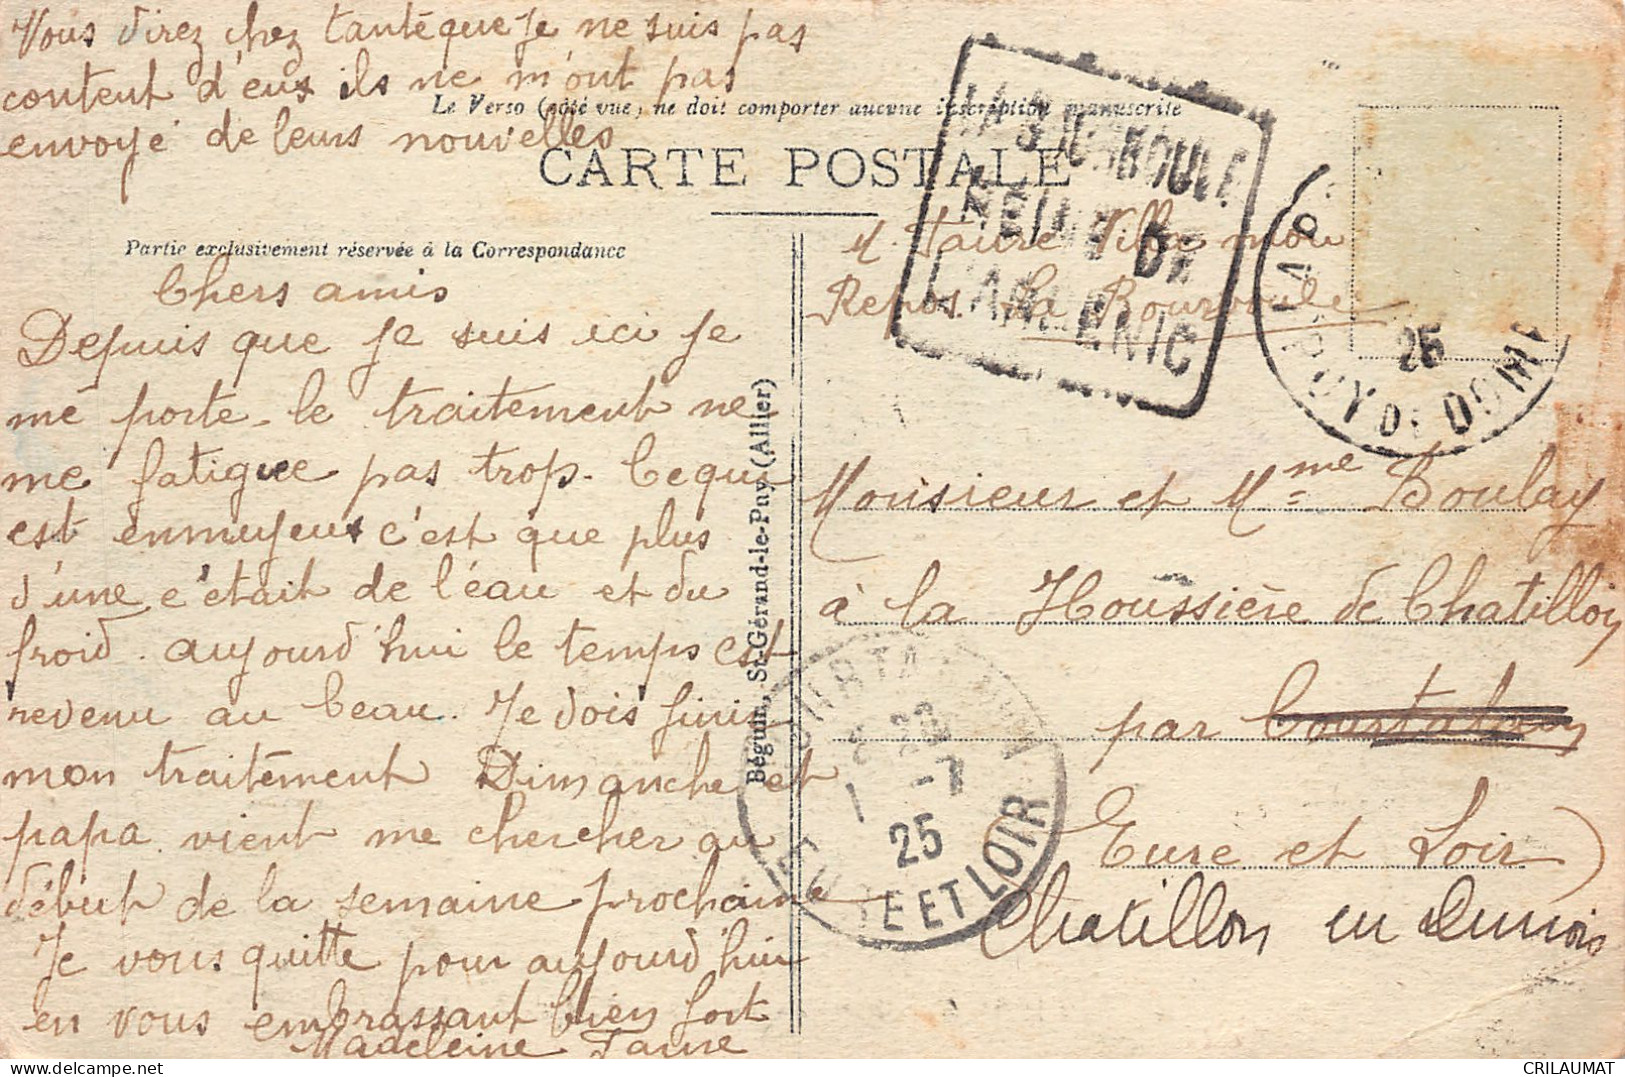 Vous direz chez tante que je ne suis pas
content d'eux ils ne m'ont pas
envoyé de leurs nouvelles
Le Verso (côté vue) ne doit comporter aucune inscription manuscrite
CARTE POSTALE
Partie exclusivement réservée à la Correspondance
Chers amis
Depuis que je suis ici je
me porte le traitement ne
me fatigue pas trop. Ce qui
est ennuyeux c'est que plus
d'une c'était de l'eau et du
froid. aujourd'hui le temps est
revenu au beau. Je dois finir
mon traitement Dimanche et
papa vient me chercher au
début de la semaine prochaine
Je vous quitte pour aujourd'hui
en vous embrassant bien fort
Madeleine Faure
Béguin, St-Gérand-le-Puy (Allier)
LA BOURBOULE
REINE DE
L'ARSENIC
LA B
25
PUY DE DOME
M. Faure Villa mon
Repos. La Bourboule
Monsieur et Mme Boulay
à la Houssière de Chatillon
par Courtalain
Eure et Loir
Chatillon en Dunois
COURTALAIN
1 -7
25
EURE ET LOIR
CRILAUMAT